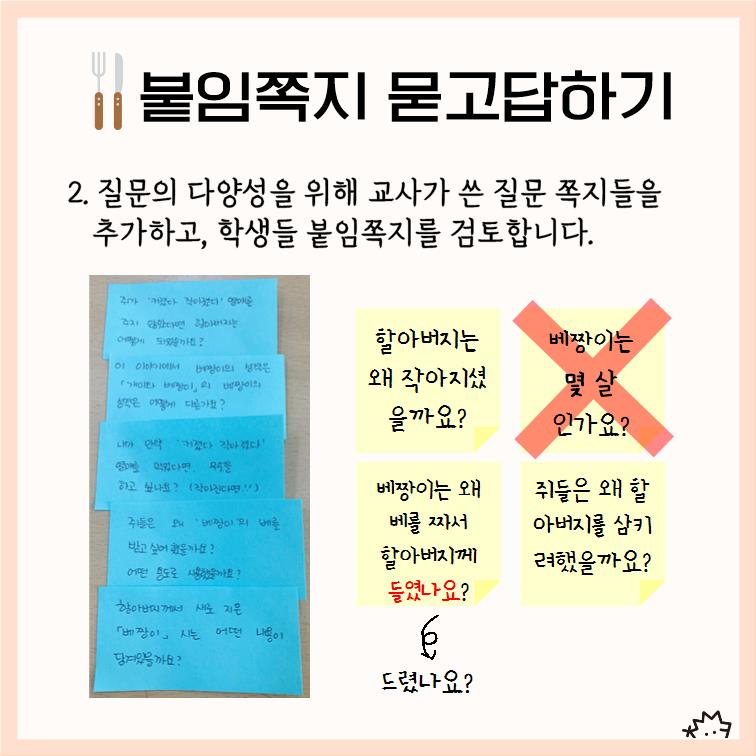 붙임쪽지 묻고답하기
2. 질문의 다양성을 위해 교사가 쓴 질문 쪽지들을
추가하고, 학생들 붙임쪽지를 검토합니다.
쥐가 '커졌다 작아졌다' 열매를
주지 않았다면 할아버지는
어떻게 되었을까요?
이 이야기에서 베짱이의 성격은
「개미와 베짱이」의 베짱이의
성격은 어떻게 다른가요?
내가 만약 '커졌다 작아졌다'
열매를 먹었다면, 무엇을
하고 싶나요? (작아진다면!!)
쥐들은 왜 '베짱이'의 베를
받고 싶어 했을까요?
어떤 용도로 사용했을까요?
할아버지께서 새로 지은
「베짱이」 시는 어떤 내용이
담겨있을까요?
할아버지는
왜 작아지셨
을까요?
베짱이는
몇 살
인가요?
베짱이는 왜
베를 짜서
할아버지께
들였나요?
드렸나요?
쥐들은 왜 할
아버지를 삼키
려했을까요?